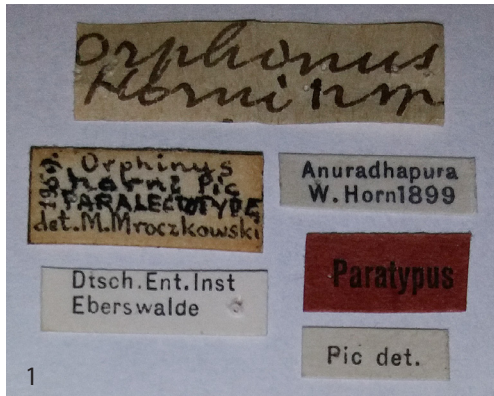 Orphonus
Horni n sp
1969.
Orphinus
horni Pic
PARALECTOTYPE
det.M.Mroczkowski
Anuradhapura
W.Horn1899
Paratypus
Dtsch.Ent.Inst
Eberswalde
Pic det.
1